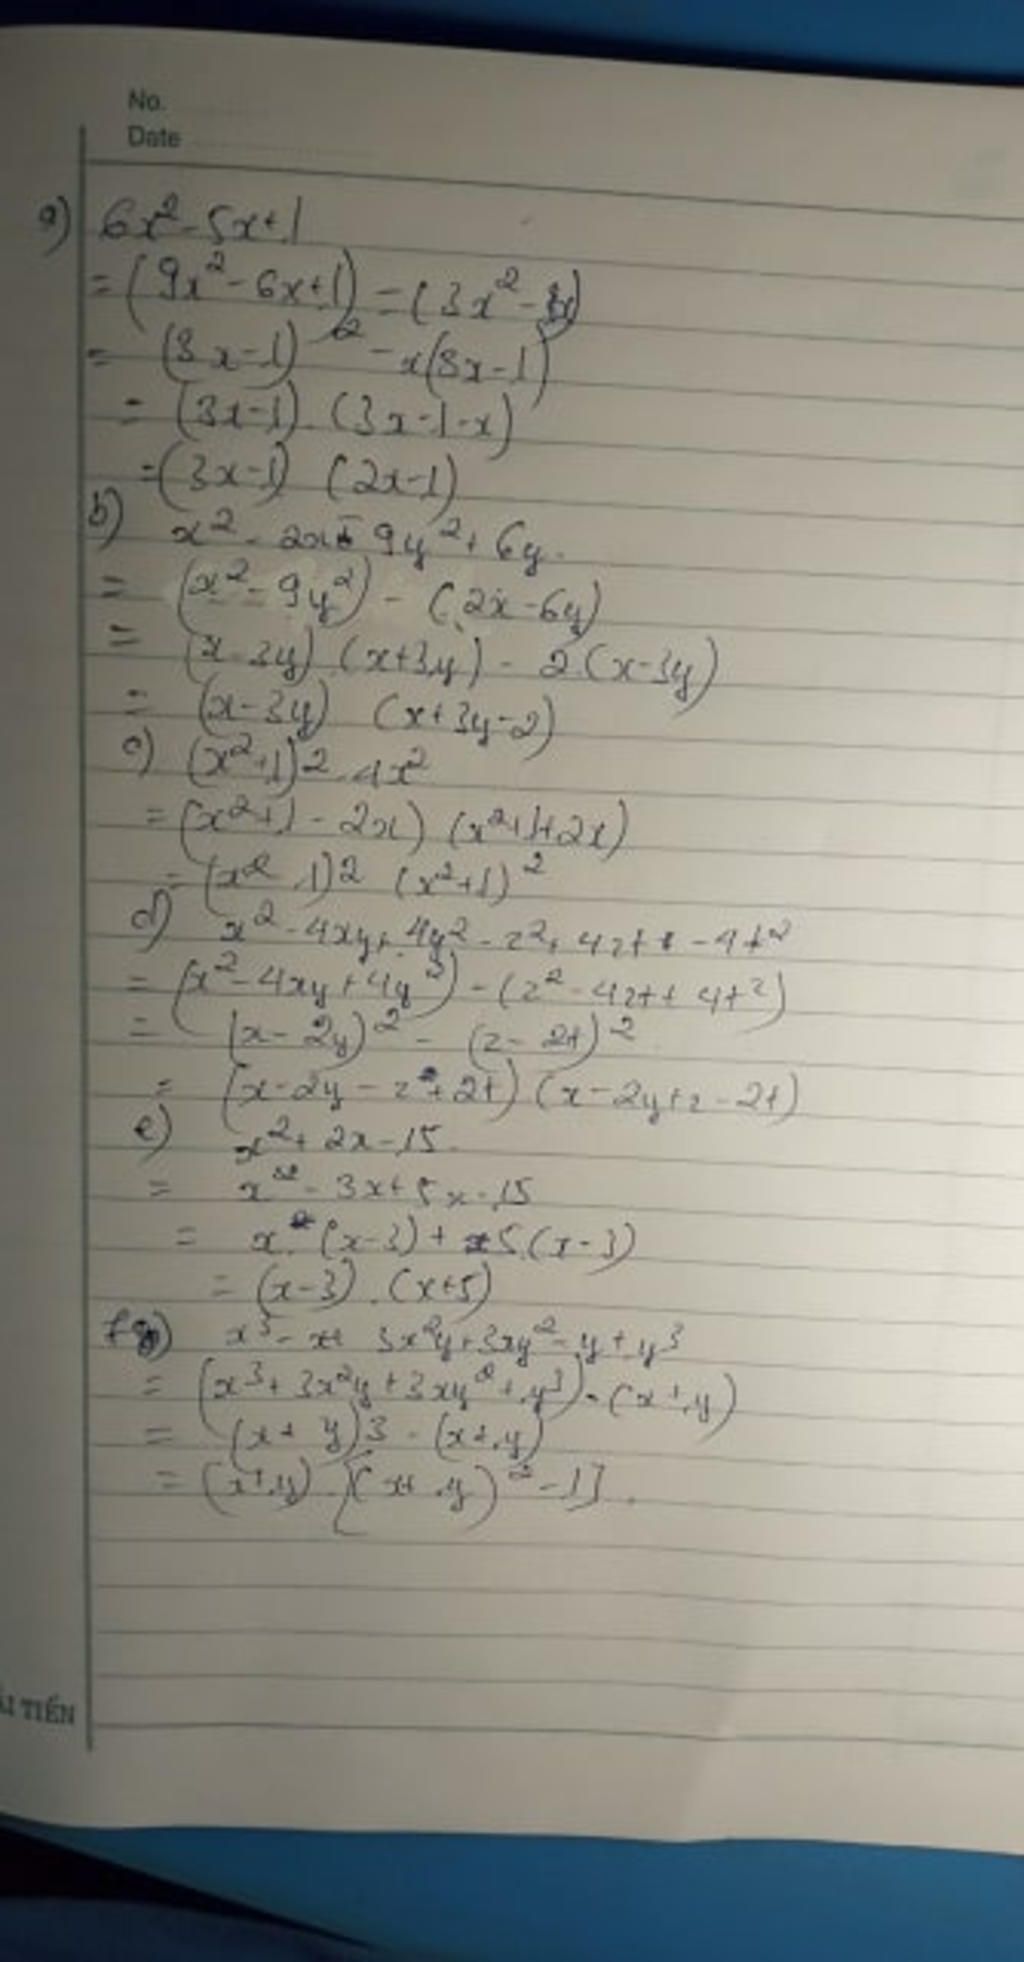 No.
Date
a) 6x² - 5x + 1
= (9x² - 6x + 1) - (3x² - x)
= (3x - 1)² - x(3x - 1)
= (3x - 1) . (3x - 1 - x)
= (3x - 1) (2x - 1)
b) x² - 2x - 9y² + 6y.
= (x² - 9y²) - (2x - 6y)
= (x - 3y) (x + 3y) - 2.(x - 3y)
= (x - 3y) (x + 3y - 2)
c) (x² + 1)² - 4x²
= (x² + 1 - 2x) (x² + 1 + 2x)
= (x² - 1)² (x² + 1)²
d) x² - 4xy + 4y² - z² + 4zt - 4t²
= (x² - 4xy + 4y²) - (z² - 4zt + 4t²)
= (x - 2y)² - (z - 2t)²
= (x - 2y - z + 2t) . (x - 2y + z - 2t)
e) x² + 2x - 15.
= x² - 3x + 5x - 15
= x . (x - 3) + 5.(x - 3)
= (x - 3) . (x + 5)
f) x³ - x + 3x²y + 3xy² - y + y³
= (x³ + 3x²y + 3xy² + y³) - (x + y)
= (x + y)³ - (x + y)
= (x + y) . [(x + y)² - 1].
ẢI TIẾN